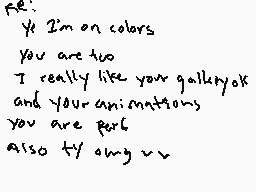 Re:
Ye I'm on colors
you are too
I really like your gallery ok
and your animations
you are perf
Also ty omg vv